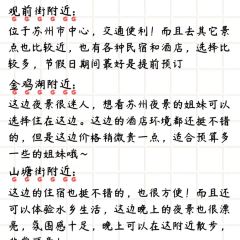 观前街附近：
位于苏州市中心，交通便利！而且去其它景
点也比较近，也有各种民宿和酒店，选择比
较多，节假日期间最好是提前预订
金鸡湖附近：
这边夜景很迷人，想看苏州夜景的姐妹可以
选择住在这边。这边的酒店环境都还挺不错
的，但是这边价格稍微贵一点，适合预算多
一些的姐妹哦～
山塘街附近：
这边的住宿也挺不错的，也很方便！而且还
可以体验水乡生活，这边晚上的夜景也很漂
亮，氛围感十足，晚上可以在这附近散步，